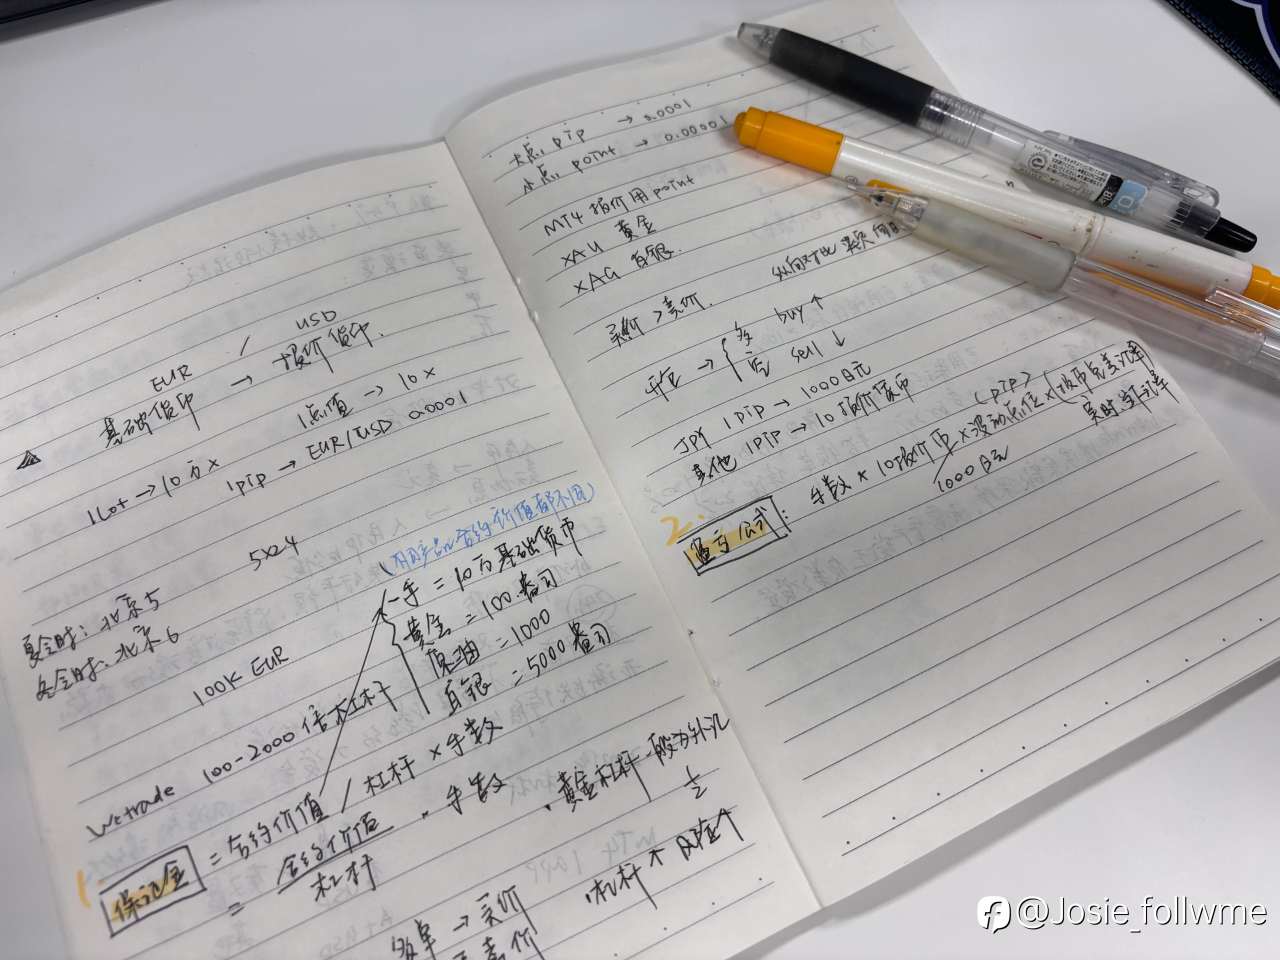 EUR / USD
基础货币 → 报价货币.
1点值 → 10×
1Lot → 10万×
1pip → EUR/USD 0.0001
5×24
夏令时: 北京5
冬令时: 北京6
(不同产品合约价值都不同)
一手 = 10万基础货币
黄金 = 100盎司
原油 = 1000
白银 = 5000盎司
100K EUR
Wetrade 100-2000倍杠杆
1.
保证金 = 合约价值 / 杠杆 × 手数
= 合约价值 · 手数
杠杆
· 黄金杠杆一般为外汇
1/2
多单 → 买价
卖价
大点 pip → 0.0001
小点 point → 0.00001
MT4 报价用point
XAU 黄金
XAG 白银.
买价 > 卖价.
纵向对比
开仓 → 多 buy ↑
空 sell ↓
JPY 1pip → 1000日元
其他 1pip → 10报价货币
2.
盈亏公式: 手数 × 10报价币 × 波动点位 (pip) ×
1000日元
实时
@Josie_follwme